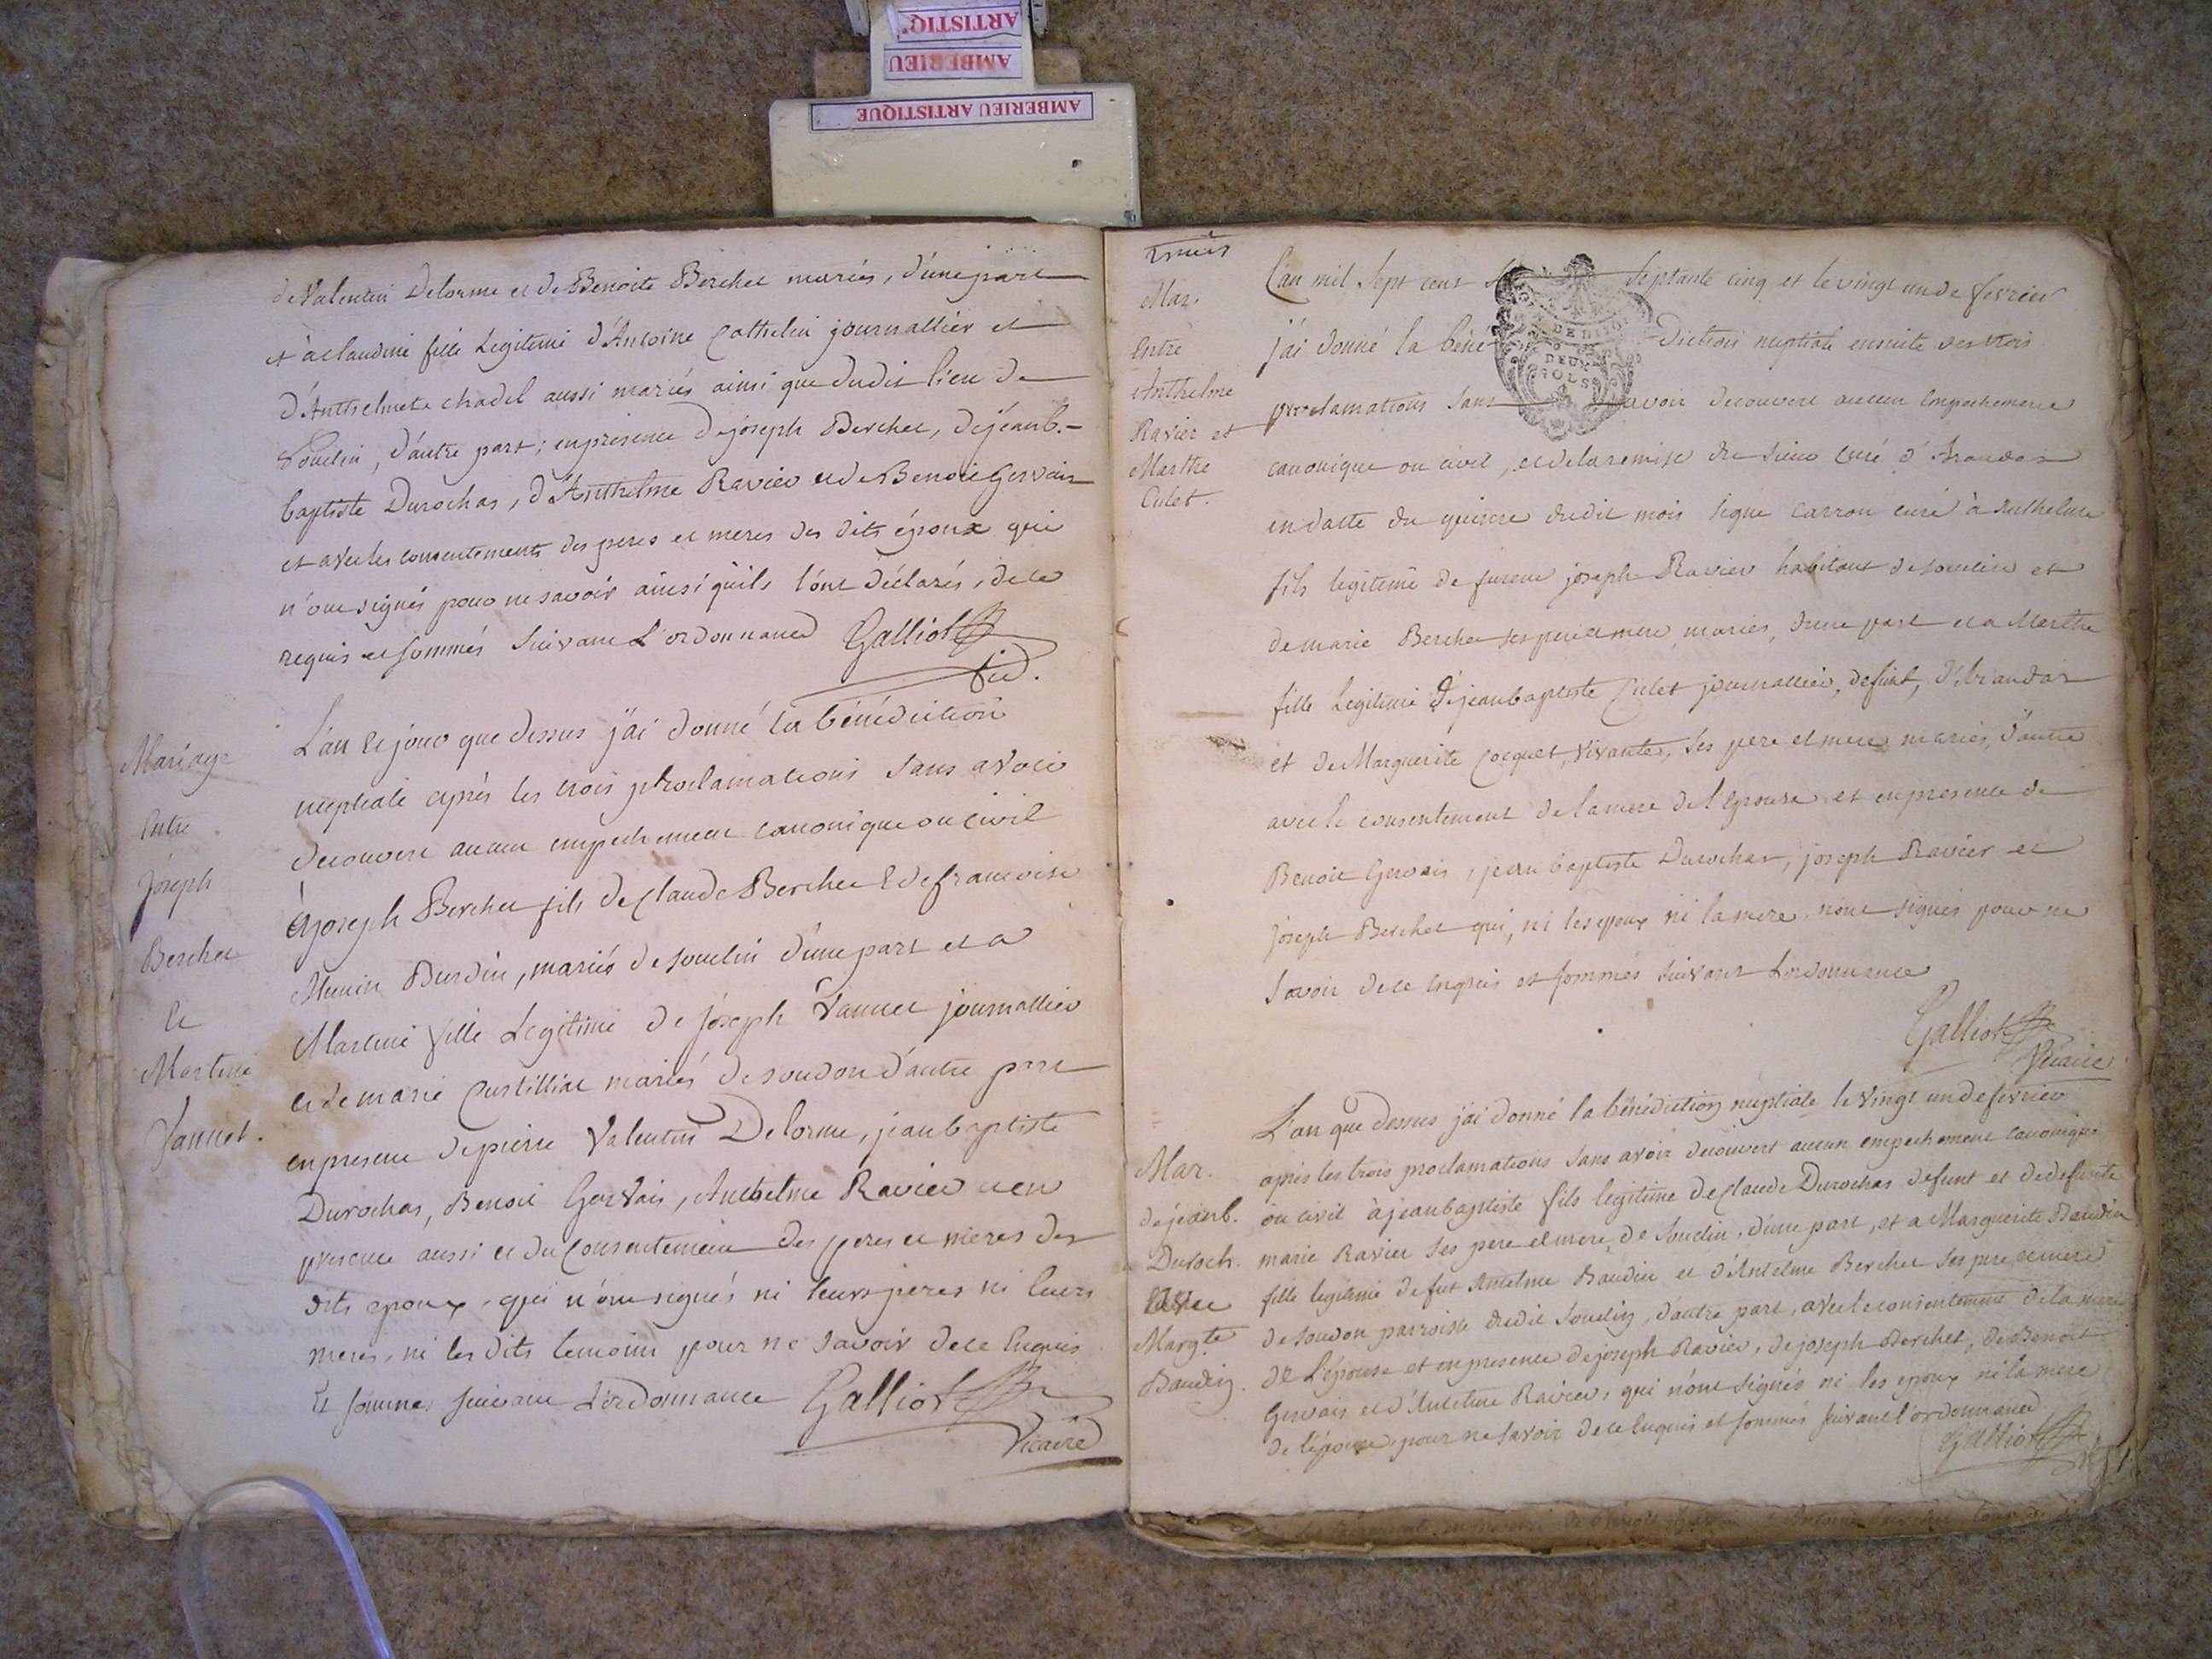 ARTISTIQ
AMBERIEU
AMBERIEU ARTISTIQUE
de Valentin Delorme et de Benoite Berchet mariés, d'une part
et à Claudine fille Legitime d'Antoine Cathelin journallier et
d'Anthelmete chadel aussi mariés ainsi que dudit lieu de
Souclin, d'autre part; en presence de joseph Berchet, de jean b.-
baptiste Durochas, d'Anthelme Ravier et de Benoit Gervais
et avec les consentements des peres et meres des dits époux qui
n'ont signés pour ne savoir ainsi qu'ils l'ont déclarés, de ce
requis et sommés suivant L'ordonnance Galliot
vic.
Mariage
Entre
Joseph
Berchet
Et
Martine
Vannet.
L'an et jour que dessus j'ai donné la bénédiction
nuptiale après les trois proclamations sans avoir
decouvert aucun empechement canonique ou civil
à joseph Berchet fils de Claude Berchet & de francoise
Burdin, mariés de souclin d'une part et a
Martine fille Legitime de Joseph Vannet journallier
et de marie mariés de soudon d'autre part
en presence de pierre Valentin Delorme, jean baptiste
Durochas, Benoit Gervais, Anthelme Ravier et en
presence aussi et du Consentement des peres et meres des
dits epoux, qui n'ont signés ni leurs peres ni leurs
meres, ni les dits temoins pour ne savoir de ce Enquis
Et sommes suivant L'ordonnance Galliot
Vicaire
Mar.
Entre
Anthelme
Ravier et
Marthe
Culet.
L'an mil Sept cent Septante cinq et le vingt un de fevrier
DEUX
SOLS
j'ai donné la béné-diction nuptiale ensuite des trois
proclamations sans avoir decouvert aucun Empechement
canonique ou civil, et de la remise du sieur curé d'Arandas
en datte du quinze dudit mois signé Carron curé à Anthelme
fils legitime de joseph Ravier habitant de souclin et
de marie Berchet ses pere et mere mariés, d'une part et a Marthe
fille Legitime de jean baptiste Culet journallier, defunt, d'Arandas
et de Marguerite Cocquet, vivante, ses pere et mere mariés, d'autre
avec le consentement de la mere de l'Epouse et en presence de
Benoit Gervais, jean baptiste Durochas, joseph Ravier et
joseph Berchet qui, ni les epoux ni la mere n'ont signés pour ne
savoir de ce enquis et sommés suivant L'ordonnance
Galliot
Vicaire
Mar.
de jean b.
Duroch.
avec
Margte
Baudin.
L'an que dessus j'ai donné la bénédiction nuptiale le vingt un de fevrier
après les trois proclamations sans avoir decouvert aucun empechement canonique
ou civil à jean baptiste fils legitime de Claude Durochas defunt et de defunte
marie Ravier ses pere et mere, de Souclin, d'une part, et a Marguerite Baudin
fille legitime de fut Antelme Baudin et d'Antelme Berchet ses pere et mere
de soudon parroisse dudit Souclin, d'autre part, avec le consentement de la mere
de L'épouse et en presence de joseph Ravier, de joseph Berchet, de Benoit
Gervais et d'Antelme Ravier, qui n'ont signés ni les epoux ni la mere
de l'épouse, pour ne savoir de ce Enquis et sommés suivant l'ordonnance
Galliot